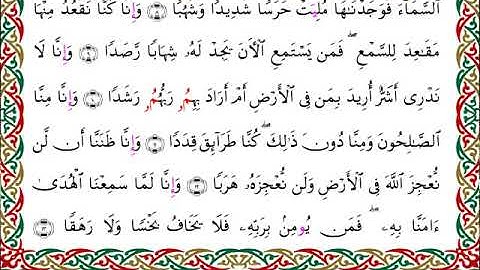 ٱلسَّمَآءَ فَوَجَدْنَٰهَا مُلِيَتْ حَرَسًا شَدِيدًا وَشُهُبًا ٨ وَإِنَّا كُنَّا نَقْعُدُ مِنْهَا
مَقَٰعِدَ لِلسَّمْعِ ۖ فَمَن يَسْتَمِعِ ٱلْأَنَ يَجِدْ لَهُۥ شِهَابًا رَّصَدًا ٩ وَإِنَّا لَا
نَدْرِى أَشَرٌّ أُرِيدَ بِمَن فِى ٱلْأَرْضِ أَمْ أَرَادَ بِهِمُۥ رَبُّهُمُۥ رَشَدًا ١٠ وَإِنَّا مِنَّا
ٱلصَّٰلِحُونَ وَمِنَّا دُونَ ذَٰلِكَ ۖ كُنَّا طَرَآئِقَ قِدَدًا ١١ وَإِنَّا ظَنَنَّا أَن لَّن
نُّعْجِزَ ٱللَّهَ فِى ٱلْأَرْضِ وَلَن نُّعْجِزَهُۥ هَرَبًا ١٢ وَإِنَّا لَمَّا سَمِعْنَا ٱلْهُدَىٰ
ءَامَنَّا بِهِۦ ۖ فَمَن يُومِنۢ بِرَبِّهِۦ فَلَا يَخَافُ بَخْسًا وَلَا رَهَقًا ١٣